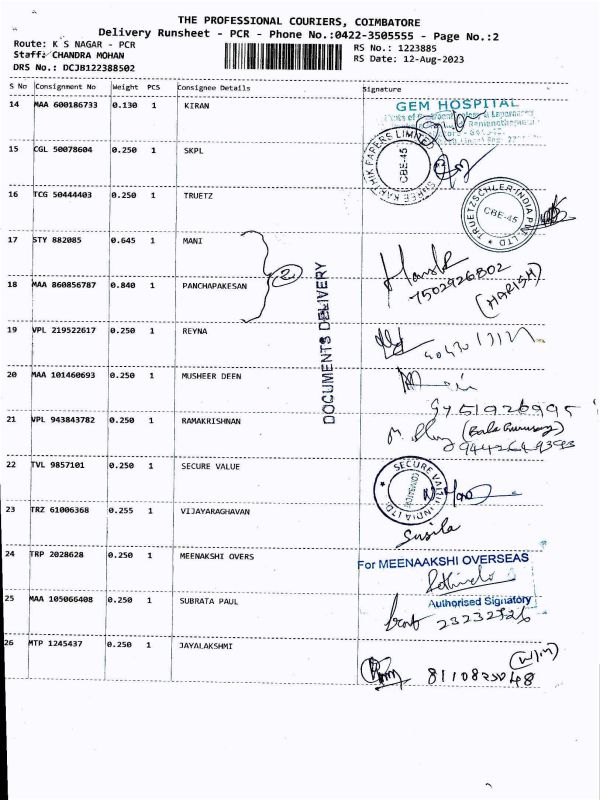 THE PROFESSIONAL COURIERS, COIMBATORE
Delivery Runsheet - PCR - Phone No.:0422-3505555 - Page No.:2
Route: K S NAGAR - PCR
Staff: CHANDRA MOHAN
DRS No.: DCJB122388502
RS No.: 1223885
RS Date: 12-Aug-2023
S No Consignment No Weight PCS Consignee Details Signature
14 MAA 600186733 0.130 1 KIRAN
GEM HOSPITAL
15 CGL 50078604 0.250 1 SKPL
SHREE KARTHIK PAPERS LIMITED
CBE-45
16 TCG 50444403 0.250 1 TRUETZ
TRUETZSCHLER INDIA PVT. LTD
CBE-45
17 STY 882085 0.645 1 MANI
2
7502926802
(HARISH)
18 MAA 860856787 0.840 1 PANCHAPAKESAN
DOCUMENTS DELIVERY
19 VPL 219522617 0.250 1 REYNA
20 MAA 101460693 0.250 1 MUSHEER DEEN
9751926995
21 VPL 943843782 0.250 1 RAMAKRISHNAN
9442649393
22 TVL 9857101 0.250 1 SECURE VALUE
SECURE VALUE INDIA LTD
COIMBATORE
23 TRZ 61006368 0.255 1 VIJAYARAGHAVAN
Susila
24 TRP 2028628 0.250 1 MEENAKSHI OVERS
For MEENAAKSHI OVERSEAS
Authorised Signatory
25 MAA 105066408 0.250 1 SUBRATA PAUL
26 MTP 1245437 0.250 1 JAYALAKSHMI
(W/M)